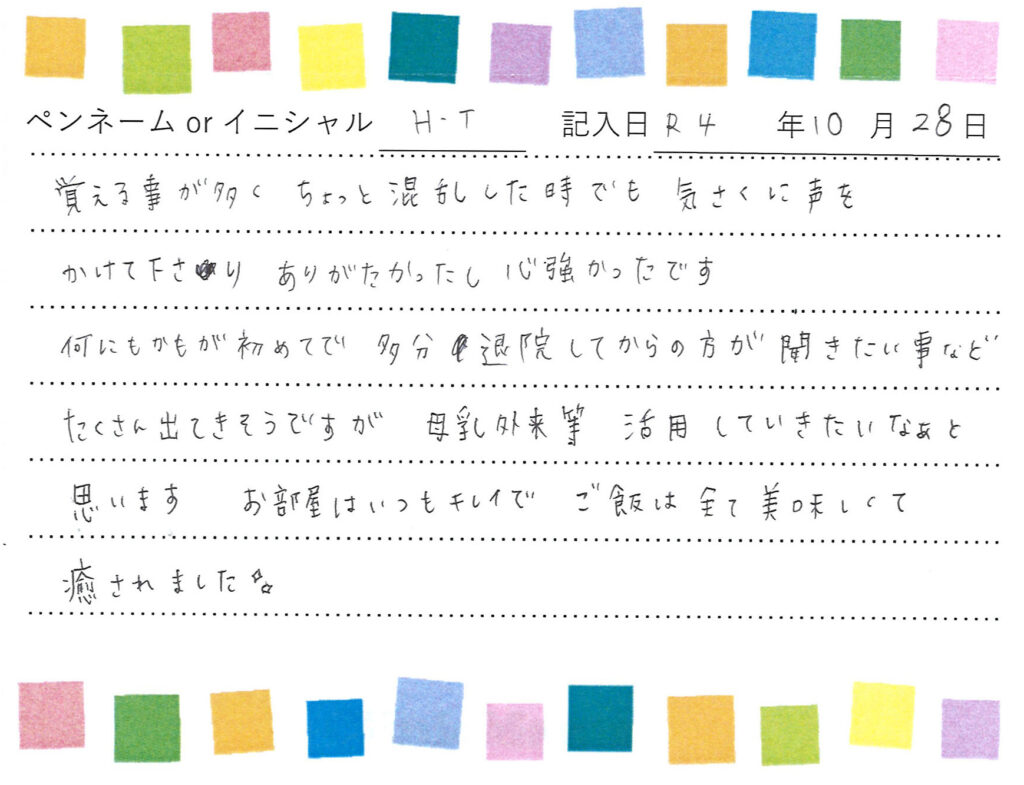 ペンネーム or イニシャル H・T 記入日 R4 年 10 月 28 日
覚える事が多く ちょっと混乱した時でも 気さくに声を
かけて下さり ありがたかったし 心強かったです
何にもかもが初めてで 多分 退院してからの方が 聞きたい事など
たくさん出てきそうですが 母乳外来等 活用していきたいなぁと
思います お部屋はいつもキレイで ご飯は全て美味しくて
癒されました☆☆